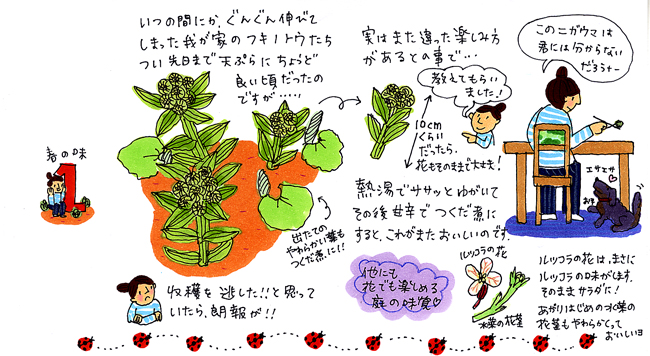 いつの間にか、ぐんぐん伸びて
しまった我が家のフキノトウたち
つい先日まで天ぷらにちょうど
良い頃だったの
ですが……
春の味
1
出たての
やわらかい葉も
つくだ煮に!!
収穫を逃した!!と思って
いたら、朗報が!!
実はまた違った楽しみ方
があるとの事で…
教えてもらい
ました!
10cm
くらい
だったら、
花もそのままで大丈夫!
熱湯でササッとゆがいて
その後甘辛でつくだ煮に
すると、これがまたおいしいのです。
このニガウマは
君には分からない
だろうナー
エサエサ
お年
他にも
花でも楽しめる
庭の味覚
ルッコラの花
水菜の花茎
ルッコラの花は、まさに
ルッコラの味がします。
そのままサラダに!
あがりはじめの水菜の
花茎もやわらかくって
おいしいヨ